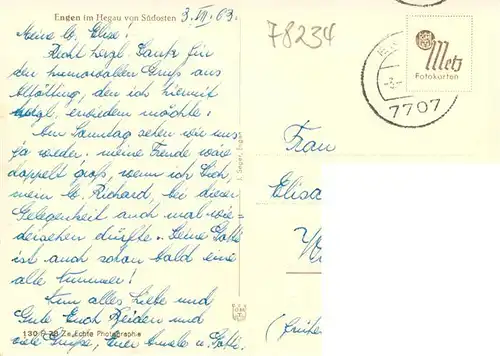 Engen im Hegau von Südosten
3. VII. 63.
Meine lb. Elise!
Recht herzl. Dank für
den humorvollen Gruß aus
Altötting, den ich hiermit
herzl. erwidern möchte!
Am Sonntag sehen wir uns
ja wieder; meine Freude wäre
doppelt groß, wenn ich Dich,
mein lb. Richard, bei dieser
Gelegenheit auch mal wie-
dersehen dürfte. Deine Gotti
ist auch schon bald eine
alte Nummer!
Nun alles Liebe und
Gute Euch Beiden und
viele Grüße, Eure u. Gotti.
130 Echte Photographie
78234
Metz
Fotokarten
7707
Frau
Elisa